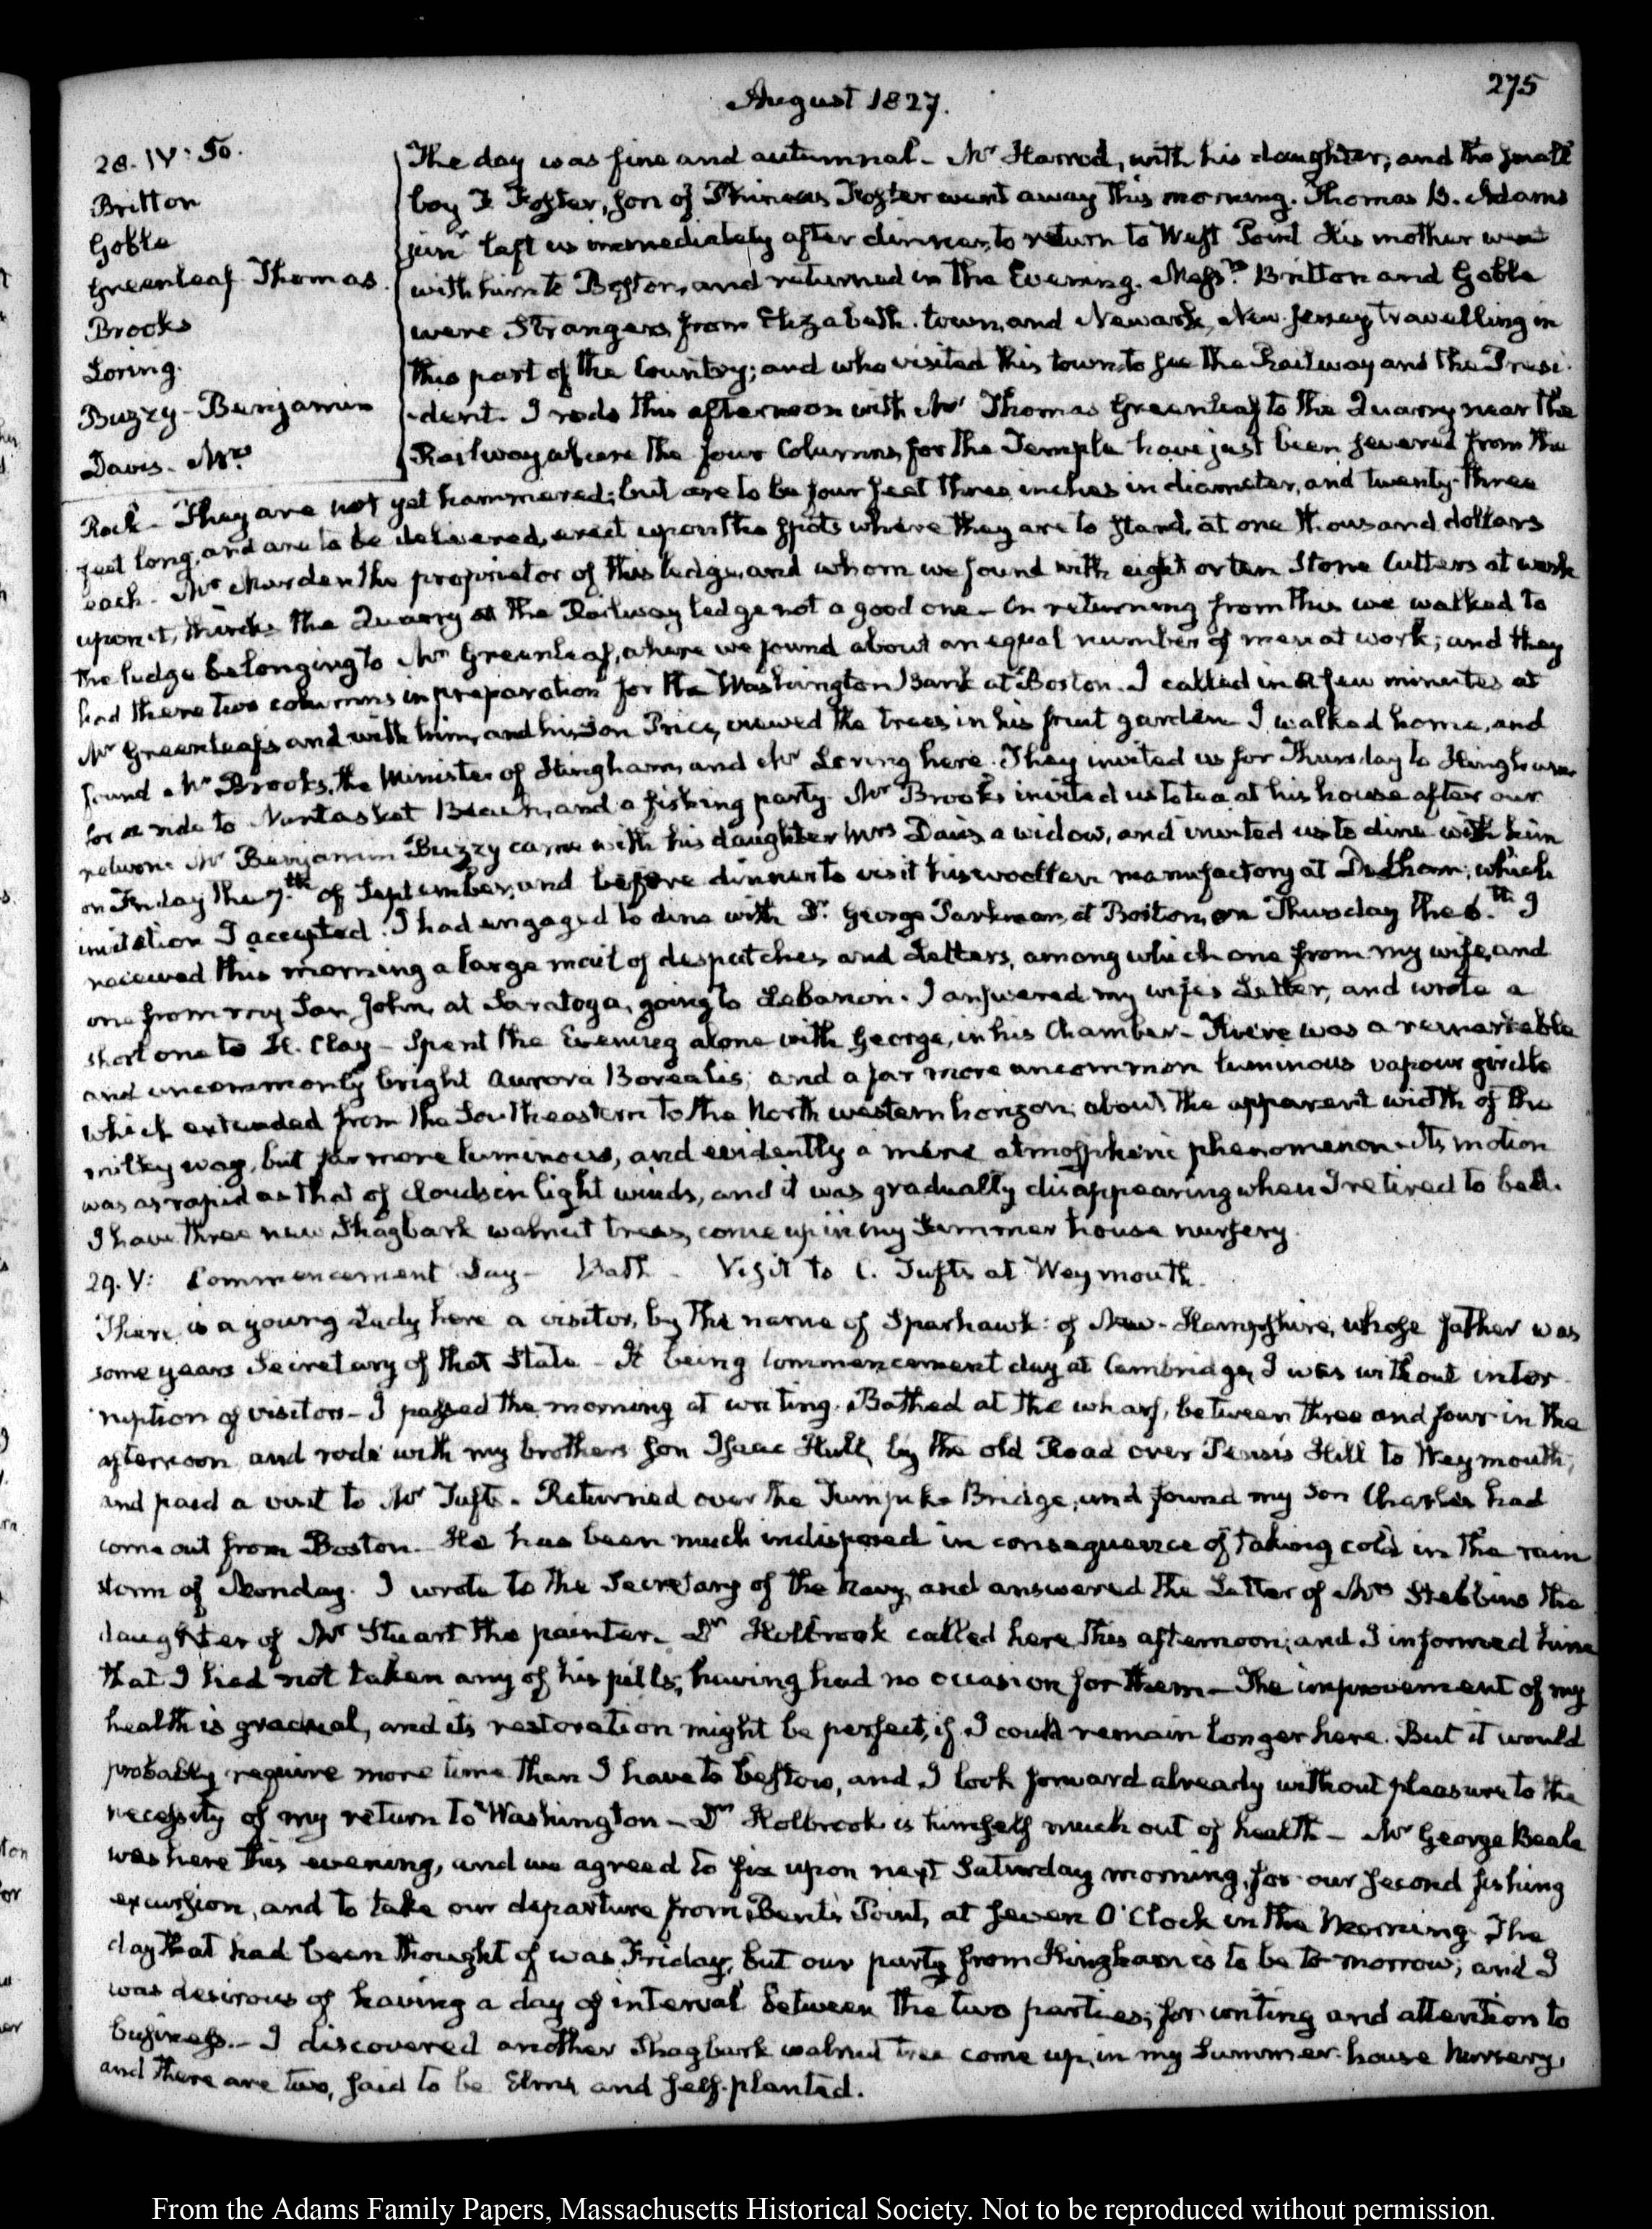 275
August 1827.
28. IV: 50.
Britton
Goble
Greenleaf Thomas.
Brooks
Loring.
Buzzy - Benjamin
Davis - Mrs
The day was fine and autumnal - Mr Harrod, with his daughter, and the small
boy F Foster, son of Phineas Foster went away this morning. Thomas B. Adams
junr left us immediately after dinner, to return to West Point His mother went
with him to Boston, and returned in the Evening. Messrs Britton and Goble
were Strangers from Elizabeth-town, and Newark, New-Jersey, travelling in
this part of the Country; and who visited this town to see the Railway and the Presi-
-dent. I rode this afternoon with Mr Thomas Greenleaf to the Quarry near the
Railway where the four Columns for the Temple have just been severed from the
Rock - They are not yet hammered; but are to be four feet three inches in diameter, and twenty-three
feet long, and are to be delivered, erect upon the spots where they are to stand, at one thousand dollars
each - Mr Marden the proprietor of this ledge, and whom we found with eight or ten Stone Cutters at work
upon it, thinks the Quarry at the Railway ledge not a good one - On returning from this we walked to
the ledge belonging to Mr Greenleaf, where we found about an equal number of men at work; and they
had there two columns in preparation for the Washington Bank at Boston. I called in a few minutes at
Mr Greenleafs and with him, and his Son Price, viewed the trees in his fruit garden I walked home, and
found Mr Brooks, the Minister of Hingham, and Mr Loring here. They invited us for Thursday to Hingham
for a ride to Nantasket Beach, and a fishing party. Mr Brooks invited us to tea at his house after our
return. Mr Benjamin Buzzy came with his daughter Mrs Davis a widow, and invited us to dine with him
on Friday the 7.th of September, and before dinner to visit his woollen manufactory at Dedham; which
invitation I accepted. I had engaged to dine with Dr George Parkman, at Boston, on Thursday the 6.th I
received this morning a large mail of despatches and Letters, among which one from my wife, and
one from my Son John, at Saratoga, going to Lebanon. I answered my wife's Letter, and wrote a
short one to H. Clay - Spent the Evening alone with George, in his Chamber - There was a remarkable
and uncommonly bright Aurora Borealis; and a far more uncommon luminous vapour girdle
which extended from the Southeastern to the North western horizon; about the apparent width of the
milky way, but far more luminous, and evidently a mere atmospheric phenomenon - Its motion
was as rapid as that of clouds in light winds, and it was gradually disappearing when I retired to bed.
I have three new Shagbark walnut trees, come up in my Summer house nursery.
29. V: Commencement Day - Bath - Visit to C. Tufts at Weymouth.
There is a young Lady here a visitor, by the name of Sparhawk: of New-Hampshire, whose father was
some years Secretary of that State - It being Commencement day at Cambridge, I was without inter-
ruption of visitors - I passed the morning at writing. Bathed at the wharf, between three and four in the
afternoon and rode with my brothers son Isaac Hull, by the old Road over Penn's Hill to Weymouth,
and paid a visit to Mr Tufts. Returned over the Turnpike Bridge, and found my Son Charles had
come out from Boston. He has been much indisposed in consequence of taking cold in the rain
storm of Monday. I wrote to the Secretary of the Navy, and answered the Letter of Mrs Stebbins the
daughter of Mr Stuart the painter. Dr Holbrook called here this afternoon; and I informed him
that I had not taken any of his pills, having had no occasion for them - The improvement of my
health is gradual, and its restoration might be perfect, if I could remain longer here. But it would
probably require more time than I have to bestow, and I look forward already without pleasure to the
necessity of my return to Washington - Dr Holbrook is himself much out of health - Mr George Beale
was here this evening, and we agreed to fix upon next Saturday morning, for our second fishing
excursion, and to take our departure from Bent's Point, at seven O'Clock in the Morning. The
day that had been thought of was Friday, but our party from Hingham is to be to-morrow; and I
was desirous of having a day of interval between the two parties; for writing and attention to
business. - I discovered another Shagbark walnut tree come up, in my Summer-house Nursery,
and there are two, said to be Elms, and self-planted.
From the Adams Family Papers, Massachusetts Historical Society. Not to be reproduced without permission.